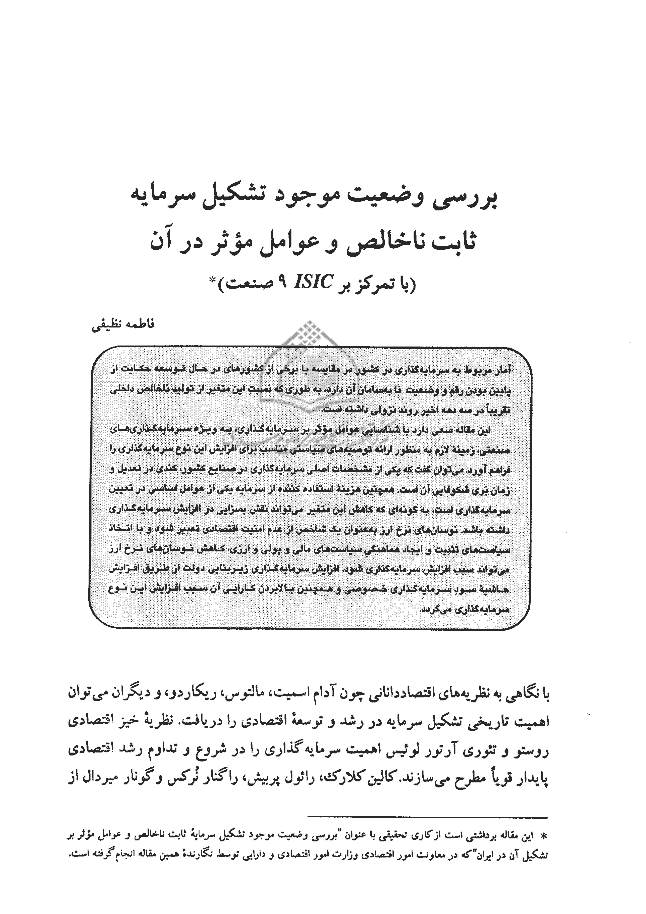 بررسی وضعیت موجود تشکیل سرمایه
ثابت ناخالص و عوامل مؤثر در آن
(با تمرکز بر ISIC ۹ صنعت)*
فاطمه نظیفی
آمار مربوط به سرمایه‌گذاری در کشور در مقایسه با برخی از کشورهای در حال توسعه حکایت از
پایین بودن رقم و وضعیت نابسامان آن دارد. به طوری که نسبت این متغیر از تولید ناخالص داخلی
تقریباً در سه دهه اخیر روند نزولی داشته است.
این مقاله سعی دارد با شناسایی عوامل مؤثر بر سرمایه‌گذاری، به ویژه سرمایه‌گذاری‌های
صنعتی، زمینه لازم به منظور ارائه توصیه‌های سیاستی مناسب برای افزایش این نوع سرمایه‌گذاری را
فراهم آورد. می‌توان گفت که یکی از مشخصات اصلی سرمایه‌گذاری در صنایع کشور، کندی در تعدیل و
زمان بری شکوفایی آن است. همچنین هزینهٔ استفاده کننده از سرمایه یکی از عوامل اساسی در تعیین
سرمایه‌گذاری است، به گونه‌ای که کاهش این متغیر می‌تواند نقش بسزایی در افزایش سرمایه‌گذاری
داشته باشد. نوسان‌های نرخ ارز به‌عنوان یک شاخص از عدم امنیت اقتصادی تعبیر شود و با اتخاذ
سیاست‌های تثبیت و ایجاد هماهنگی سیاست‌های مالی و پولی و ارزی، کاهش نوسان‌های نرخ ارز
می‌تواند سبب افزایش سرمایه‌گذاری شود. افزایش سرمایه‌گذاری زیربنایی دولت از طریق افزایش
حاشیهٔ سود سرمایه‌گذاری خصوصی و همچنین بالابردن کارایی آن سبب افزایش این نوع
سرمایه‌گذاری می‌گردد.
با نگاهی به نظریه‌های اقتصاددانانی چون آدام اسمیت، مالتوس، ریکاردو، و دیگران می‌توان
اهمیت تاریخی تشکیل سرمایه در رشد و توسعهٔ اقتصادی را دریافت. نظریهٔ خیز اقتصادی
روستو و تئوری آرتور لوئیس اهمیت سرمایه‌گذاری را در شروع و تداوم رشد اقتصادی
پایدار قویاً مطرح می‌سازند. کالین کلارک، رائول پربیش، راگنار نُرکس و گونار میردال از
* این مقاله برداشتی است از کاری تحقیقی با عنوان "بررسی وضعیت موجود تشکیل سرمایهٔ ثابت ناخالص و عوامل مؤثر بر
تشکیل آن در ایران" که در معاونت امور اقتصادی وزارت امور اقتصادی و دارایی توسط نگارندهٔ همین مقاله انجام گرفته است.